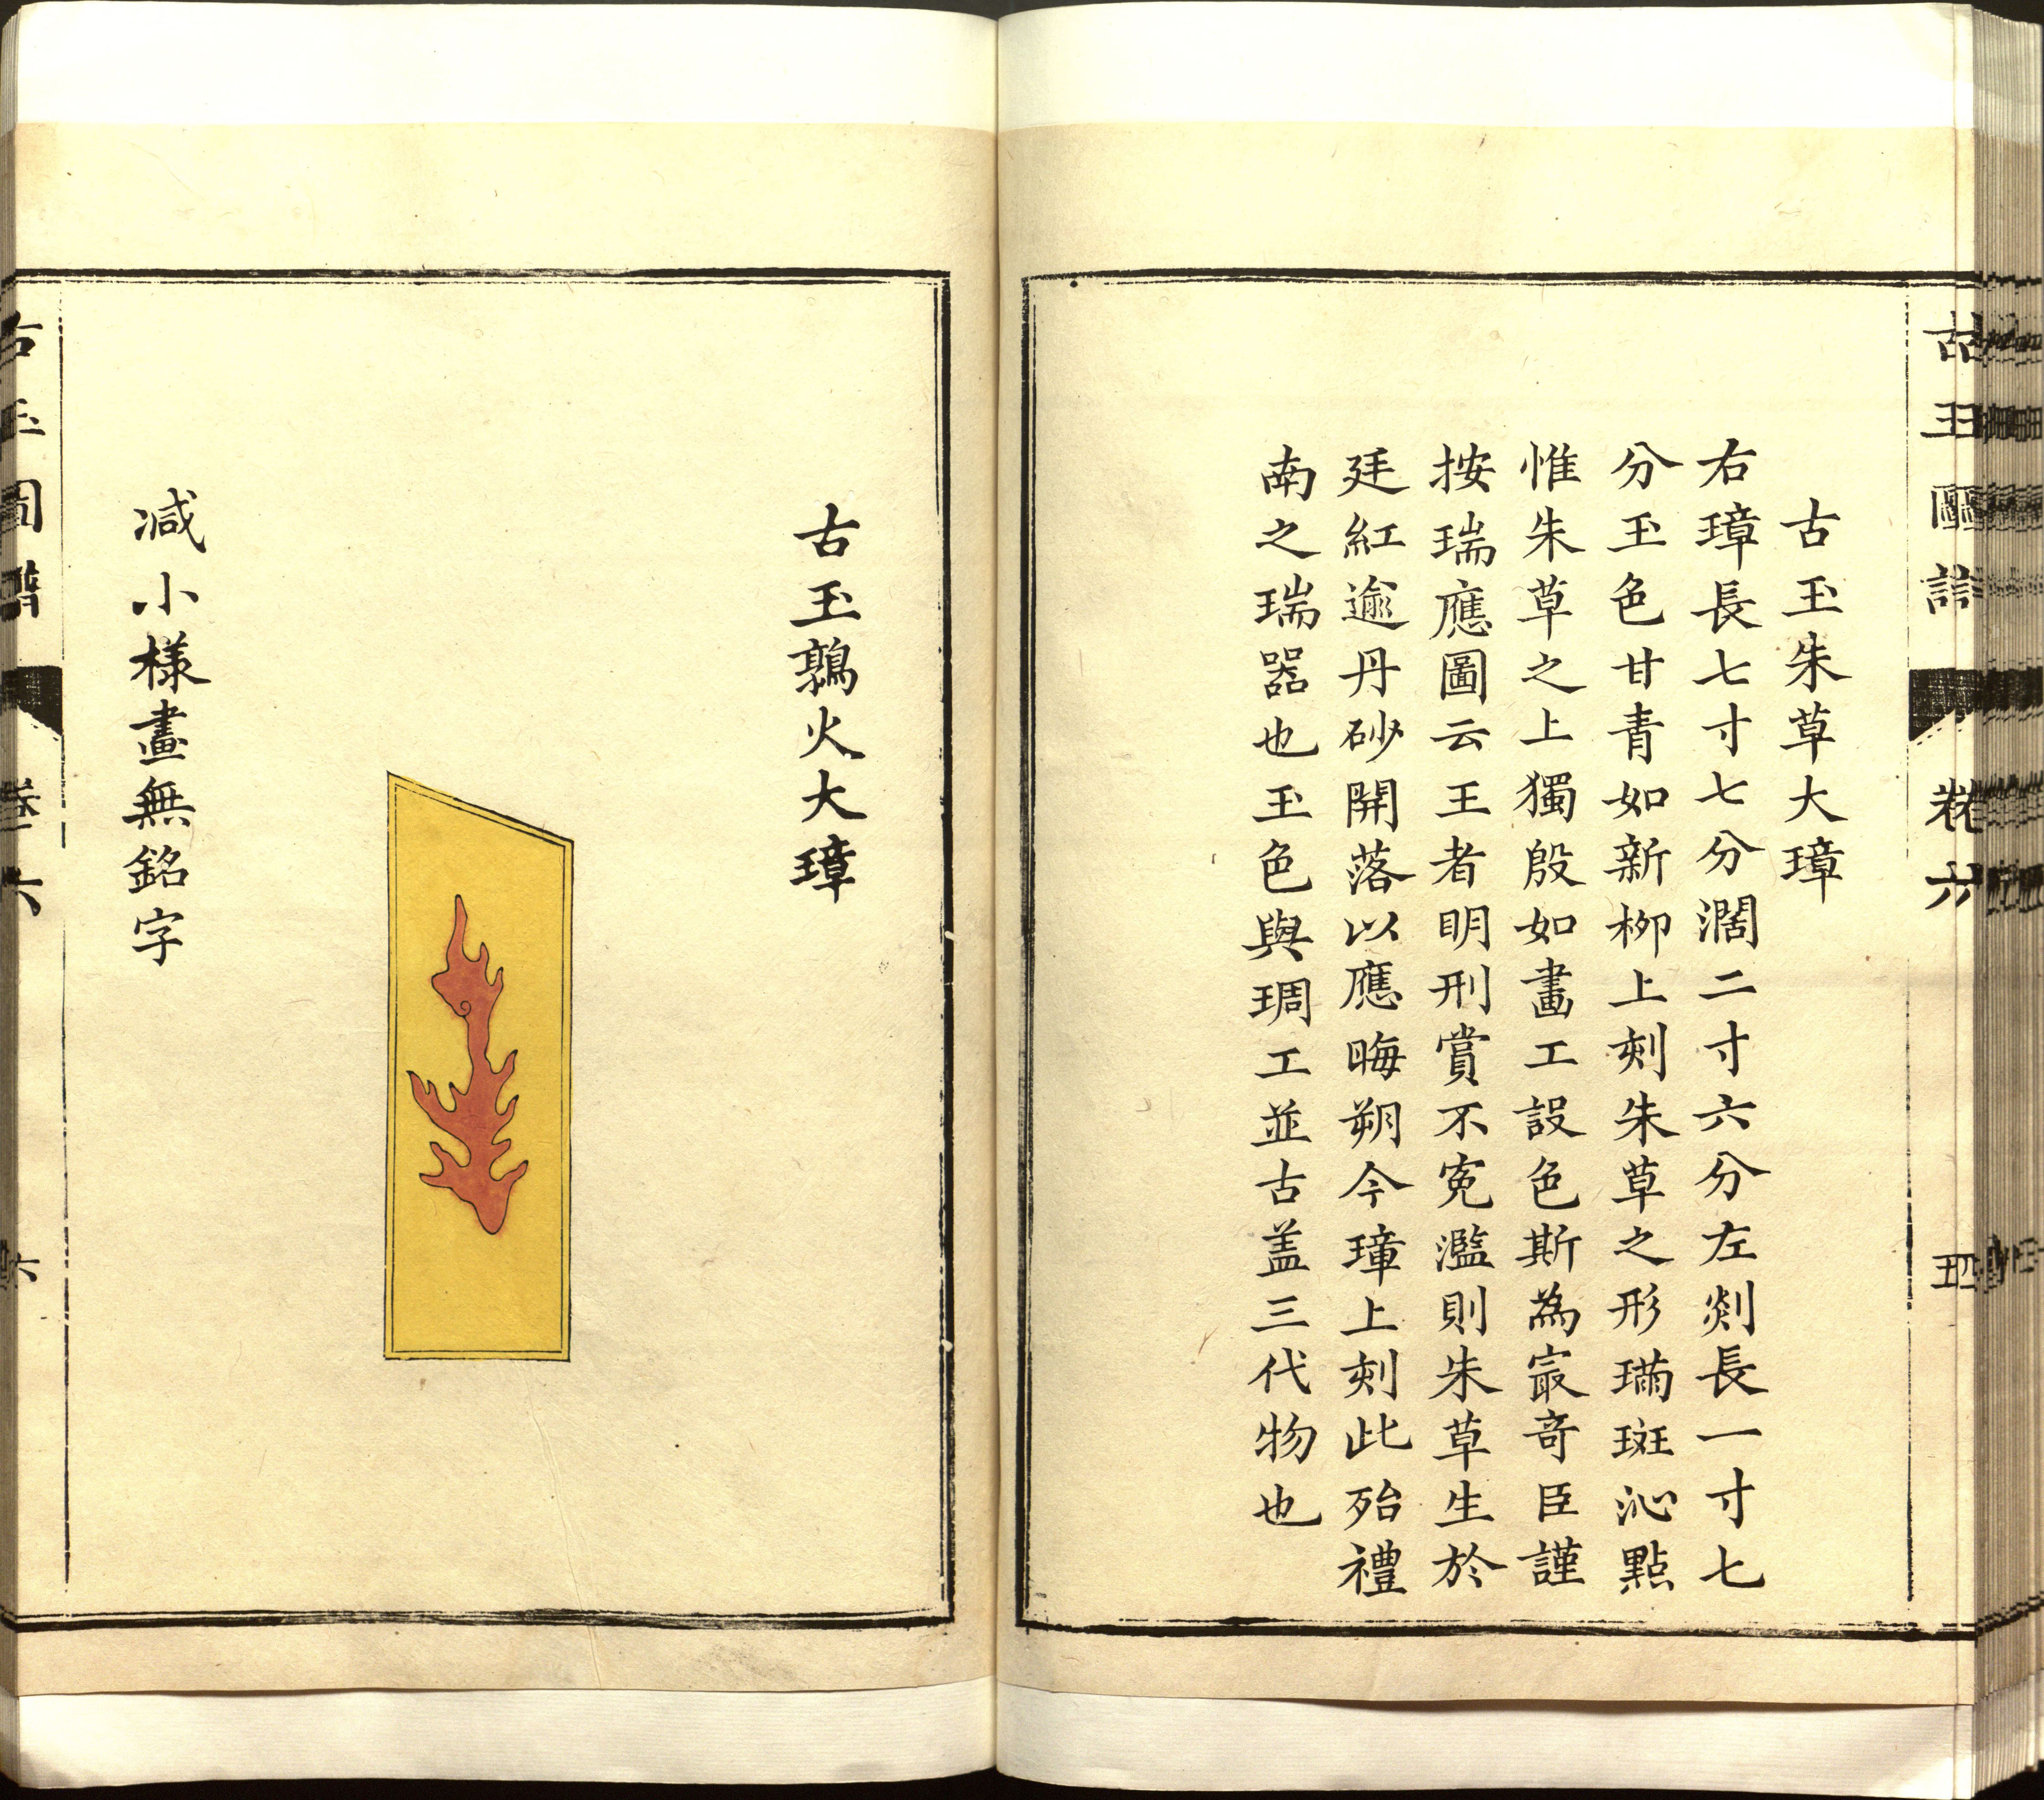 古玉圖譜 卷六 五
古玉朱草大璋
右璋長七寸七分濶二寸六分左剡長一寸七
分玉色甘青如新栁上刻朱草之形璊斑沁點
惟朱草之上獨殷如畫工設色斯為㝡竒臣謹
按瑞應圖云王者明刑賞不寃濫則朱草生於
廷紅逾丹砂開落以應晦朔今璋上刻此殆禮
南之瑞器也玉色與琱工並古盖三代物也
古玉鶉火大璋
減小様畫無銘字
古玉圖譜 卷六 六